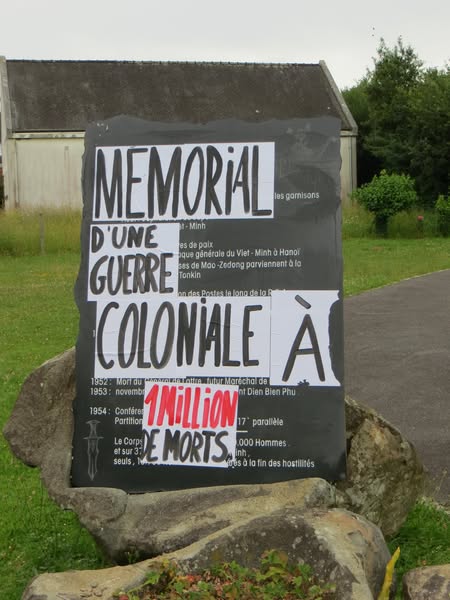 MEMORiAL
les garnisons
D'UNE
et - Minh
GUERRE
res de paix
que générale du Viet - Minh à Hanoï
ses de Mao-Zedong parviennent à la
Tonkin
on des Postes le long de la
COLONiALE À
1952 : Mort du Général de Lattre, futur Maréchal de
1953 : novemb
nt Dien Bien Phu
1 MiLLiON
1954 : Conféren
Partition 17° parallèle
DE MORTS.
Le Corps .000 Hommes
et sur 37 inh,
seuls, rés à la fin des hostilités